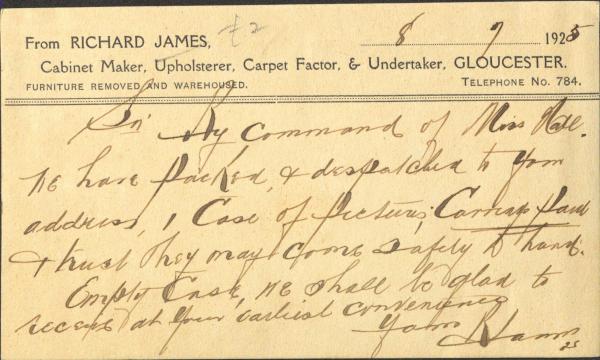 From RICHARD JAMES, £2
8 7 1925
Cabinet Maker, Upholsterer, Carpet Factor, & Undertaker, GLOUCESTER.
FURNITURE REMOVED AND WAREHOUSED. TELEPHONE No. 784.
Sir By command of Miss
We have packed, & despatched to your
address, 1 Case of pictures, Carriage paid
& trust they may come safely to hand.
Empty Case, we shall be glad to
receive at your earliest convenience
Yours RJames